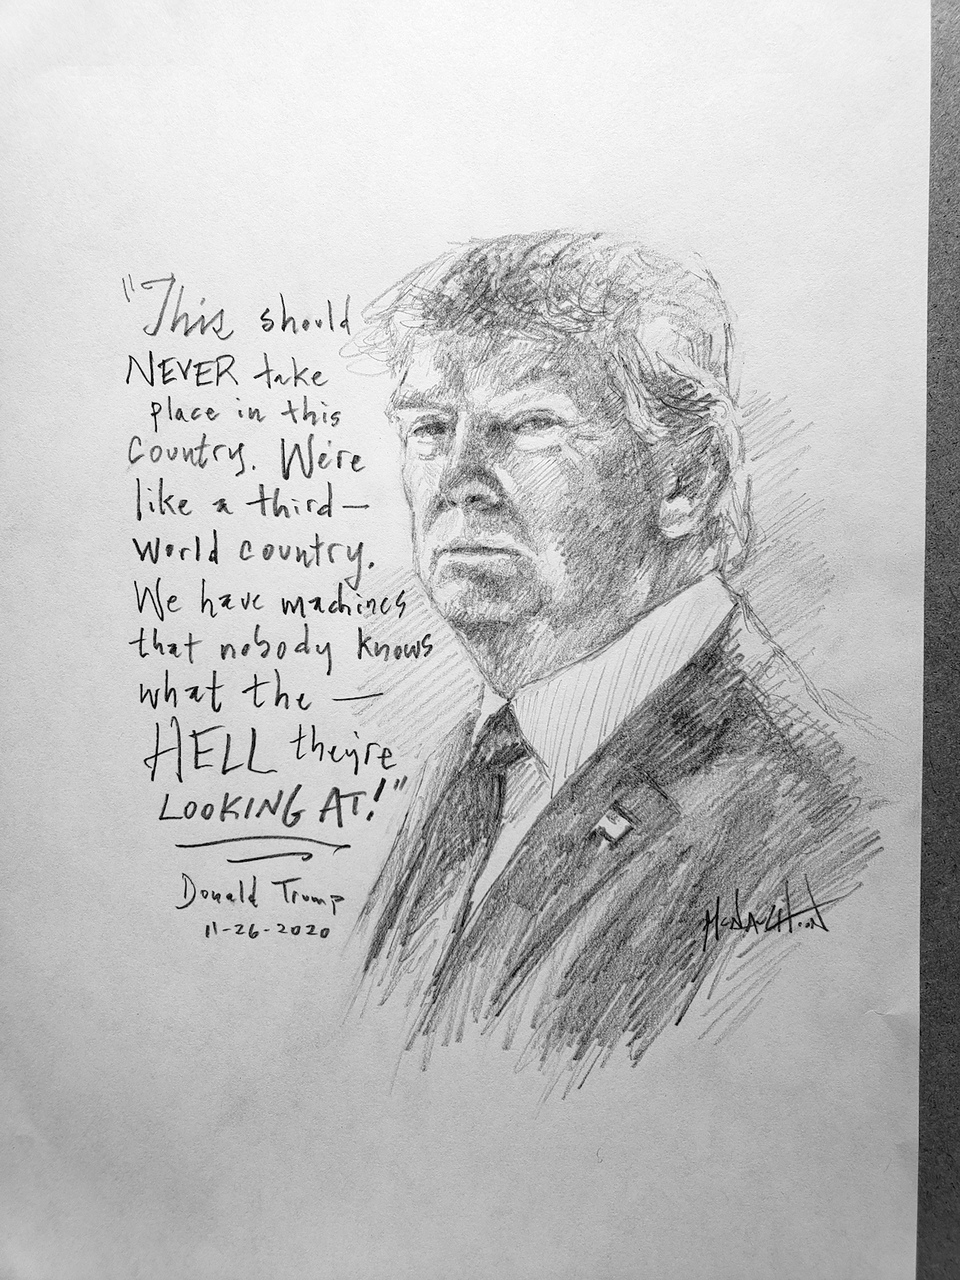 "This should
NEVER take
place in this
Country. We're
like a third—
World country.
We have machines
that nobody knows
what the —
HELL they're
LOOKING AT!"
Donald Trump
11-26-2020
McNAUGHTON